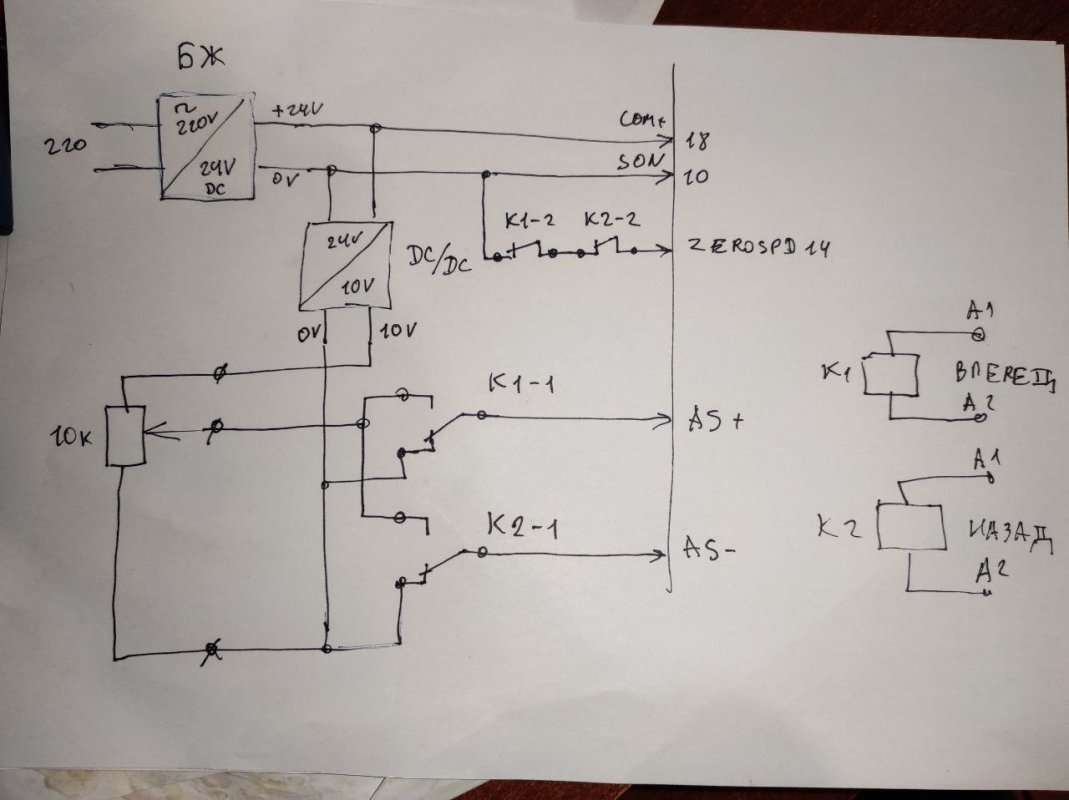 БЖ
~
220V
24V
DC
220
+24V
0V
COM+
18
SON
10
K1-2
K2-2
ZEROSPD 14
24V
10V
DC/DC
0V
10V
10K
K1-1
AS+
K2-1
AS-
K1
A1
ВПЕРЕД
A2
K2
A1
НАЗАД
A2